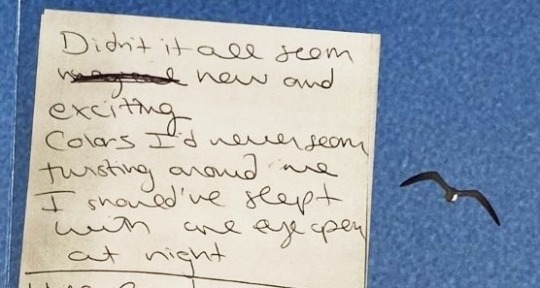 Didn't it all seem
new and
exciting
Colors I'd never seen
twisting around me
I should've slept
with one eye open
at night